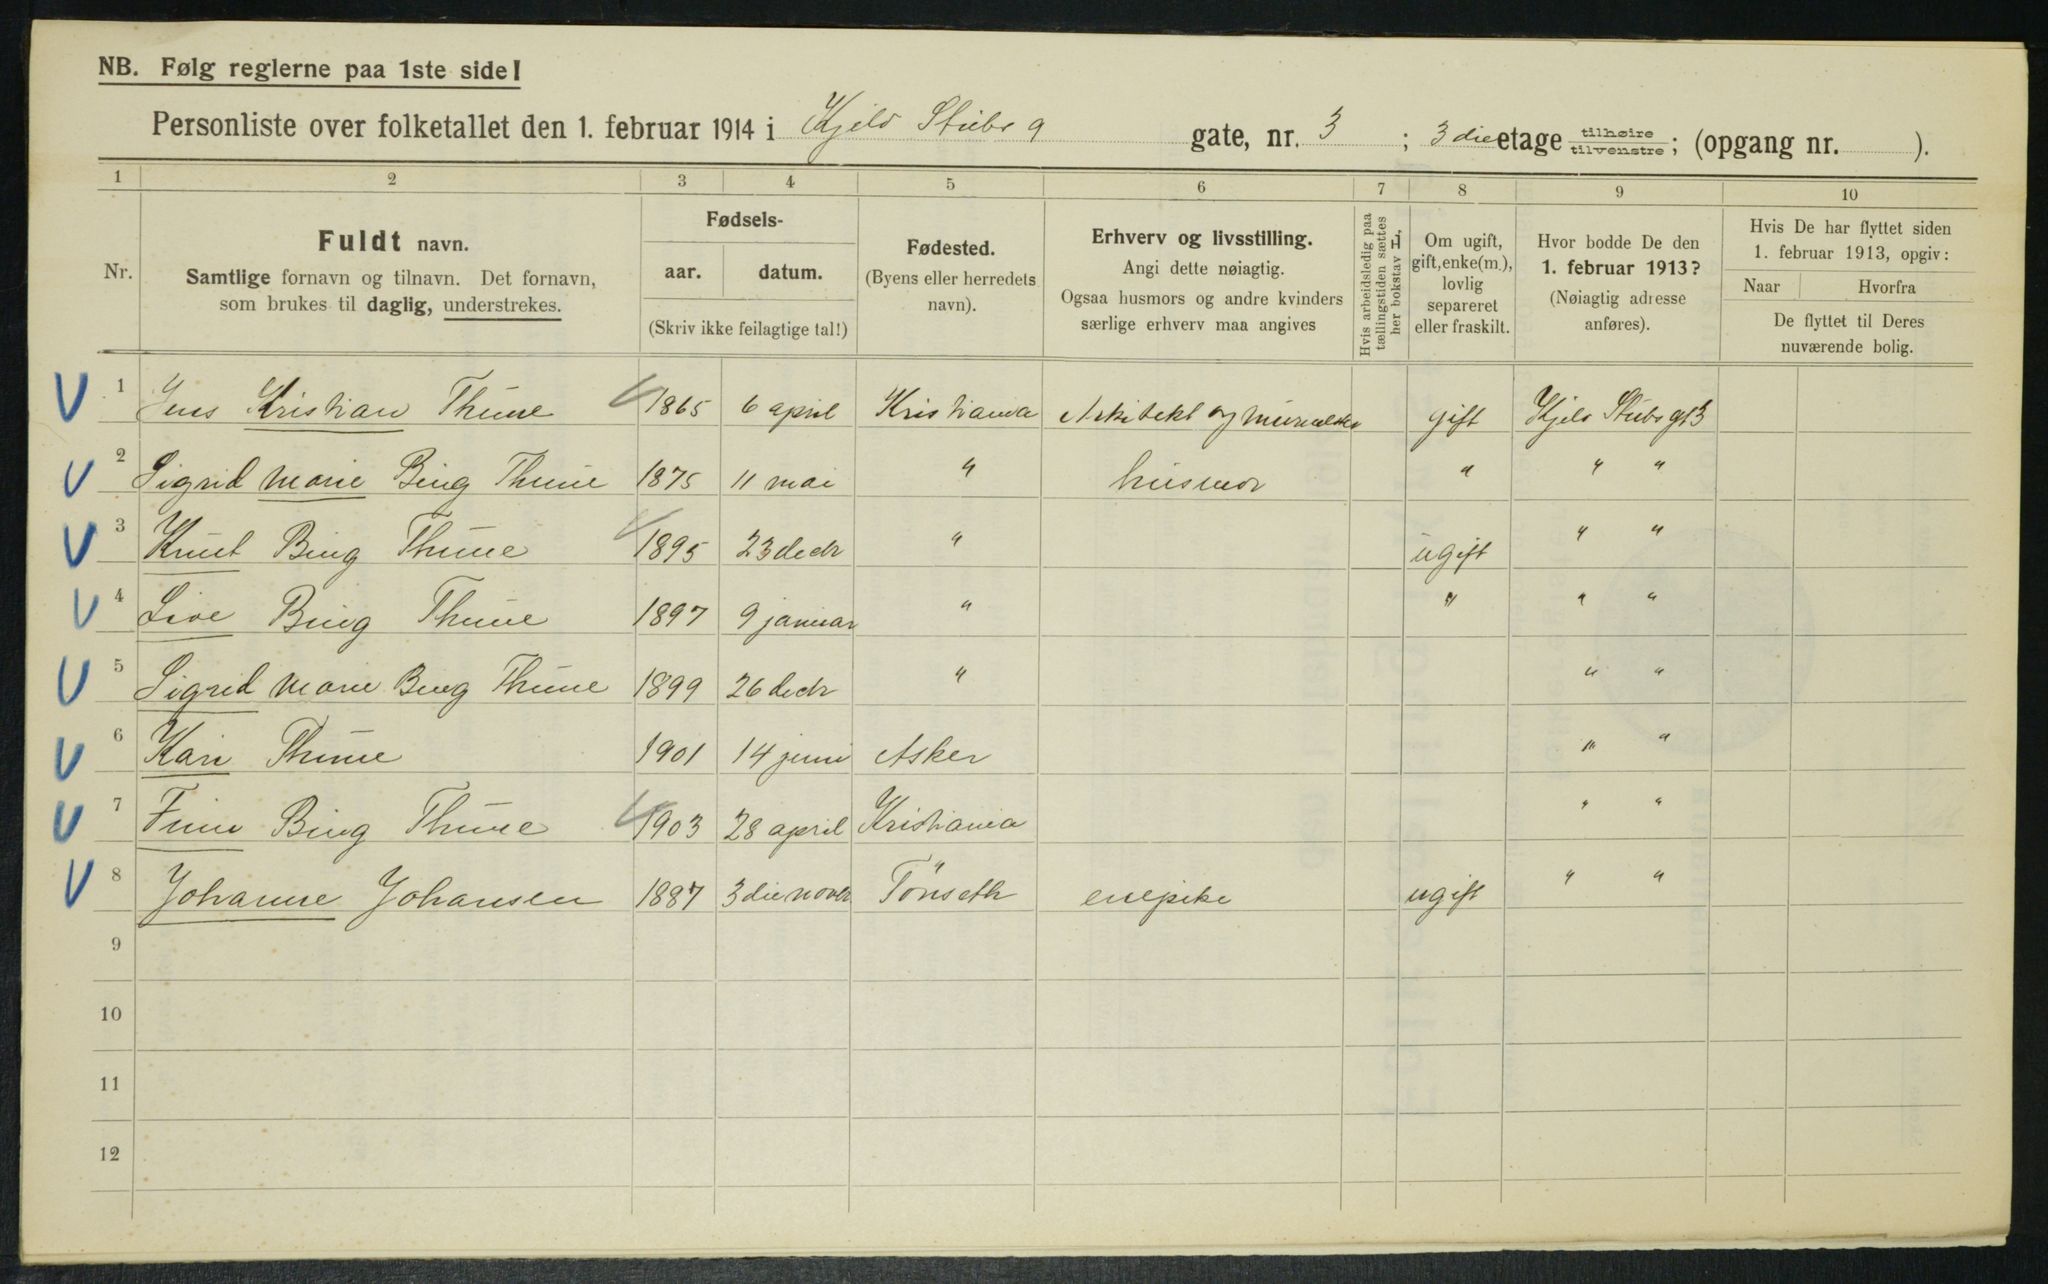 NB. Følg reglerne paa 1ste side!
Personliste over folketallet den 1. februar 1914 i Kjeld Stubs g gate, nr. 3 ; 3die etage tilhøire tilvenstre ; (opgang nr. ).
1 2 3 4 5 6 7 8 9 10
Nr.
Fuldt navn.
Samtlige fornavn og tilnavn. Det fornavn,
som brukes til daglig, understrekes.
Fødsels-
aar. datum.
(Skriv ikke feilagtige tal!)
Fødested.
(Byens eller herredets
navn).
Erhverv og livsstilling.
Angi dette nøiagtig.
Ogsaa husmors og andre kvinders
særlige erhverv maa angives
Hvis arbeidsledig paa
tællingstiden sættes
her bokstav L.
Om ugift,
gift, enke(m.),
lovlig
separeret
eller fraskilt.
Hvor bodde De den
1. februar 1913?
(Nøiagtig adresse
anføres).
Hvis De har flyttet siden
1. februar 1913, opgiv:
Naar Hvorfra
De flyttet til Deres
nuværende bolig.
1 Jens Kristian Thune 1865 6 april Kristiania Arkitekt og gift Kjeld Stubs gt 3
2 Sigrid Marie Bing Thune 1875 11 mai " husmor " " "
3 Knut Bing Thune 1895 23 decbr " ugift " "
4 Live Bing Thune 1897 9 januar " " " "
5 Sigrid Marie Bing Thune 1899 26 decbr " " "
6 Kari Thune 1901 14 juni Asker " "
7 Finn Bing Thune 1903 28 april Kristiania " "
8 Johanne Johansen 1887 3die novbr Tönseth enepike ugift " "
9
10
11
12